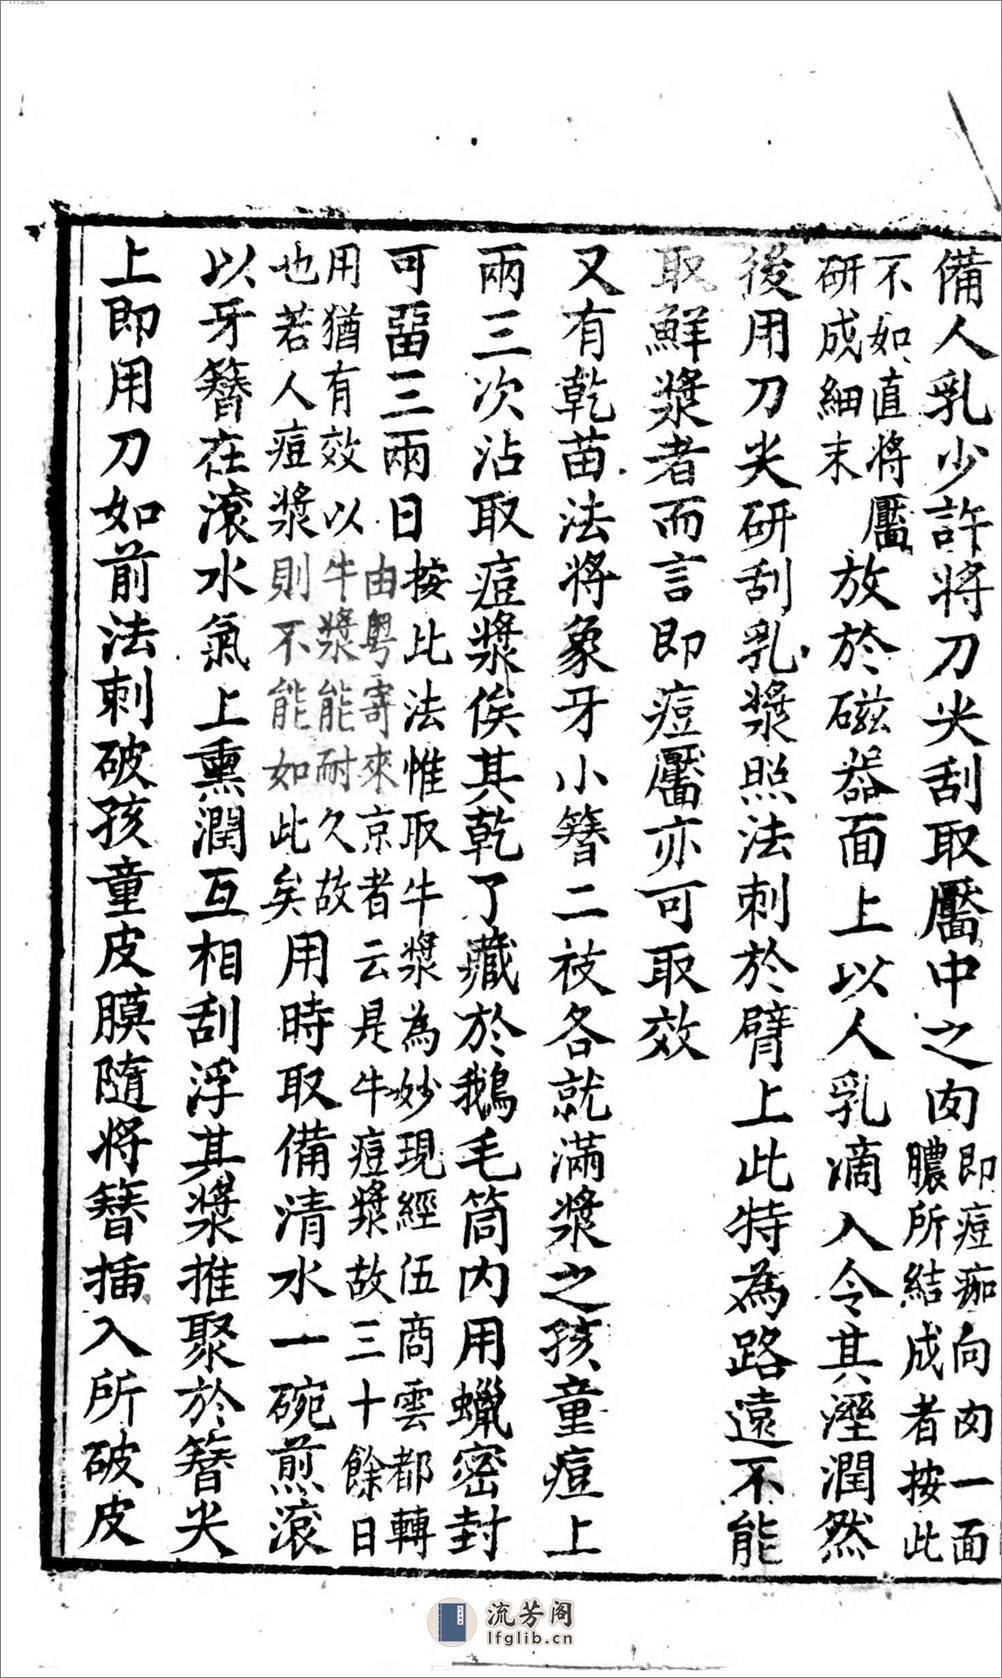 備人乳少許將刀尖刮取靨中之肉即痘痂向肉一面膿所結成者按此
不如直將靨研成細末放於磁器面上以人乳滴入令其溼潤然
後用刀尖研刮乳漿照法刺於臂上此特為路遠不能
取鮮漿者而言即痘靨亦可取效
又有乾苗法將象牙小簪二枝各就滿漿之孩童痘上
兩三次沾取痘漿俟其乾了藏於鵝毛筒內用蠟密封
可畱三兩日按此法惟取牛漿為妙現經伍商雲都轉由粵寄來京者云是牛痘漿故三十餘日
用猶有效以牛漿能耐久故也若人痘漿則不能如此矣用時取備清水一碗煎滾
以牙簪在滾水氣上熏潤互相刮浮其漿推聚於簪尖
上即用刀如前法刺破孩童皮膜隨將簪插入所破皮
流芳阁
lfglib.cn